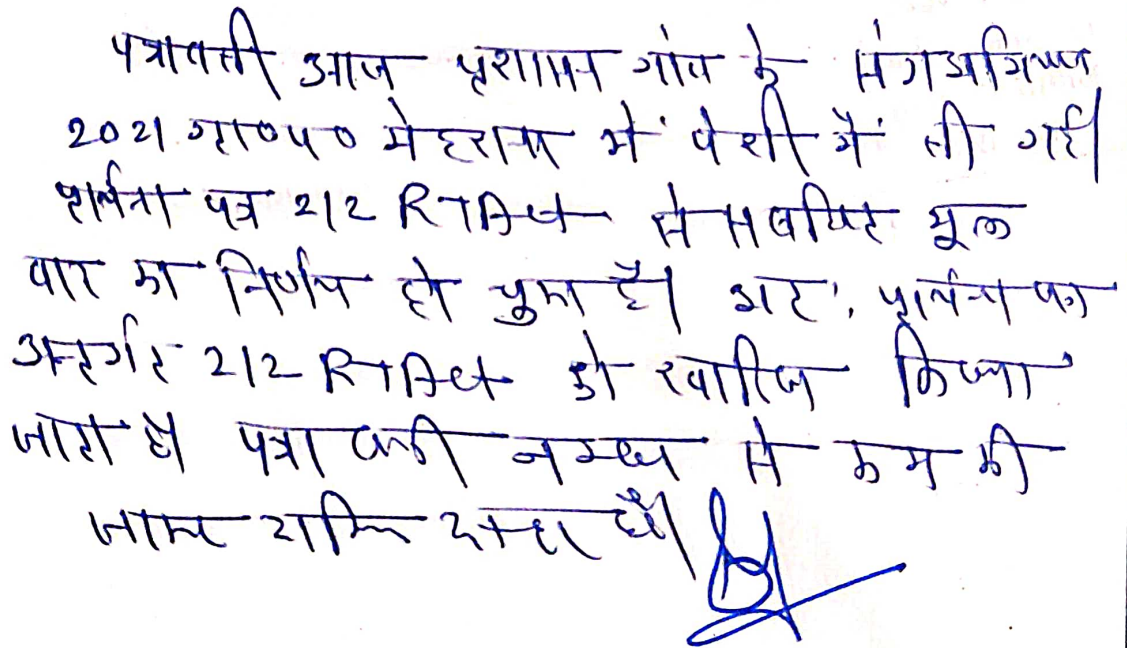 पत्रावली आज प्रशासन गांव के संग अभियान
2021 ग्रा०प० मेहराना में पेशी में ली गई।
प्रार्थना पत्र 212 RTAct से सबंधित मूल
वाद का निर्णय हो चुका है। अतः प्रार्थना पत्र
अन्तर्गत 212 RTAct को खारिज किया
जाता है पत्रावली नम्बर से कम की
जाकर दाखिल दफ्तर हो।